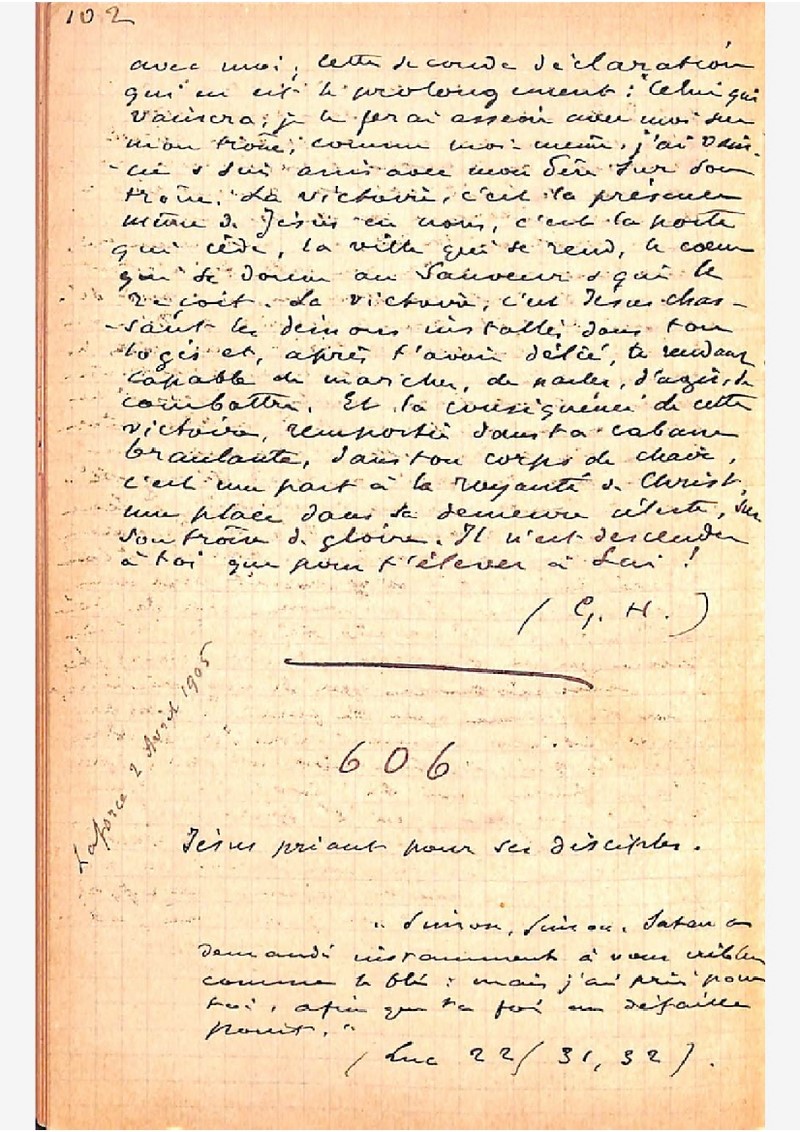 102
avec moi, cette seconde déclaration
qui en est le prolongement : "Celui qui
vaincra, je le ferai asseoir avec moi sur
mon trône, comme moi-même, j'ai vain-
-cu & suis assis avec mon Père sur son
trône." La victoire, c'est la présence
même de Jésus en nous, c'est la porte
qui cède, la ville qui se rend, le cœur
qui se donne au Sauveur & qui le
reçoit. La victoire, c'est Jésus chas-
-sant les démons installés dans ton
logis et, après t'avoir délié, te rendant
capable de marcher, de parler, d'agir, de
combattre. Et la conséquence de cette
victoire, remportée dans ta cabane
branlante, dans ton corps de chair,
c'est une part à la royauté de Christ,
une place dans sa demeure céleste, sur
son trône de gloire. Il n'est descendu
à toi que pour t'élever à Lui !
( G. H. )
Laforce 2 Avril 1905
606
Jésus priant pour ses disciples.
" Simon, Simon, Satan a
demandé instamment à vous cribler
comme le blé ; mais j'ai prié pour
toi, afin que ta foi ne défaille
point. "
( Luc 22/ 31, 32 ).